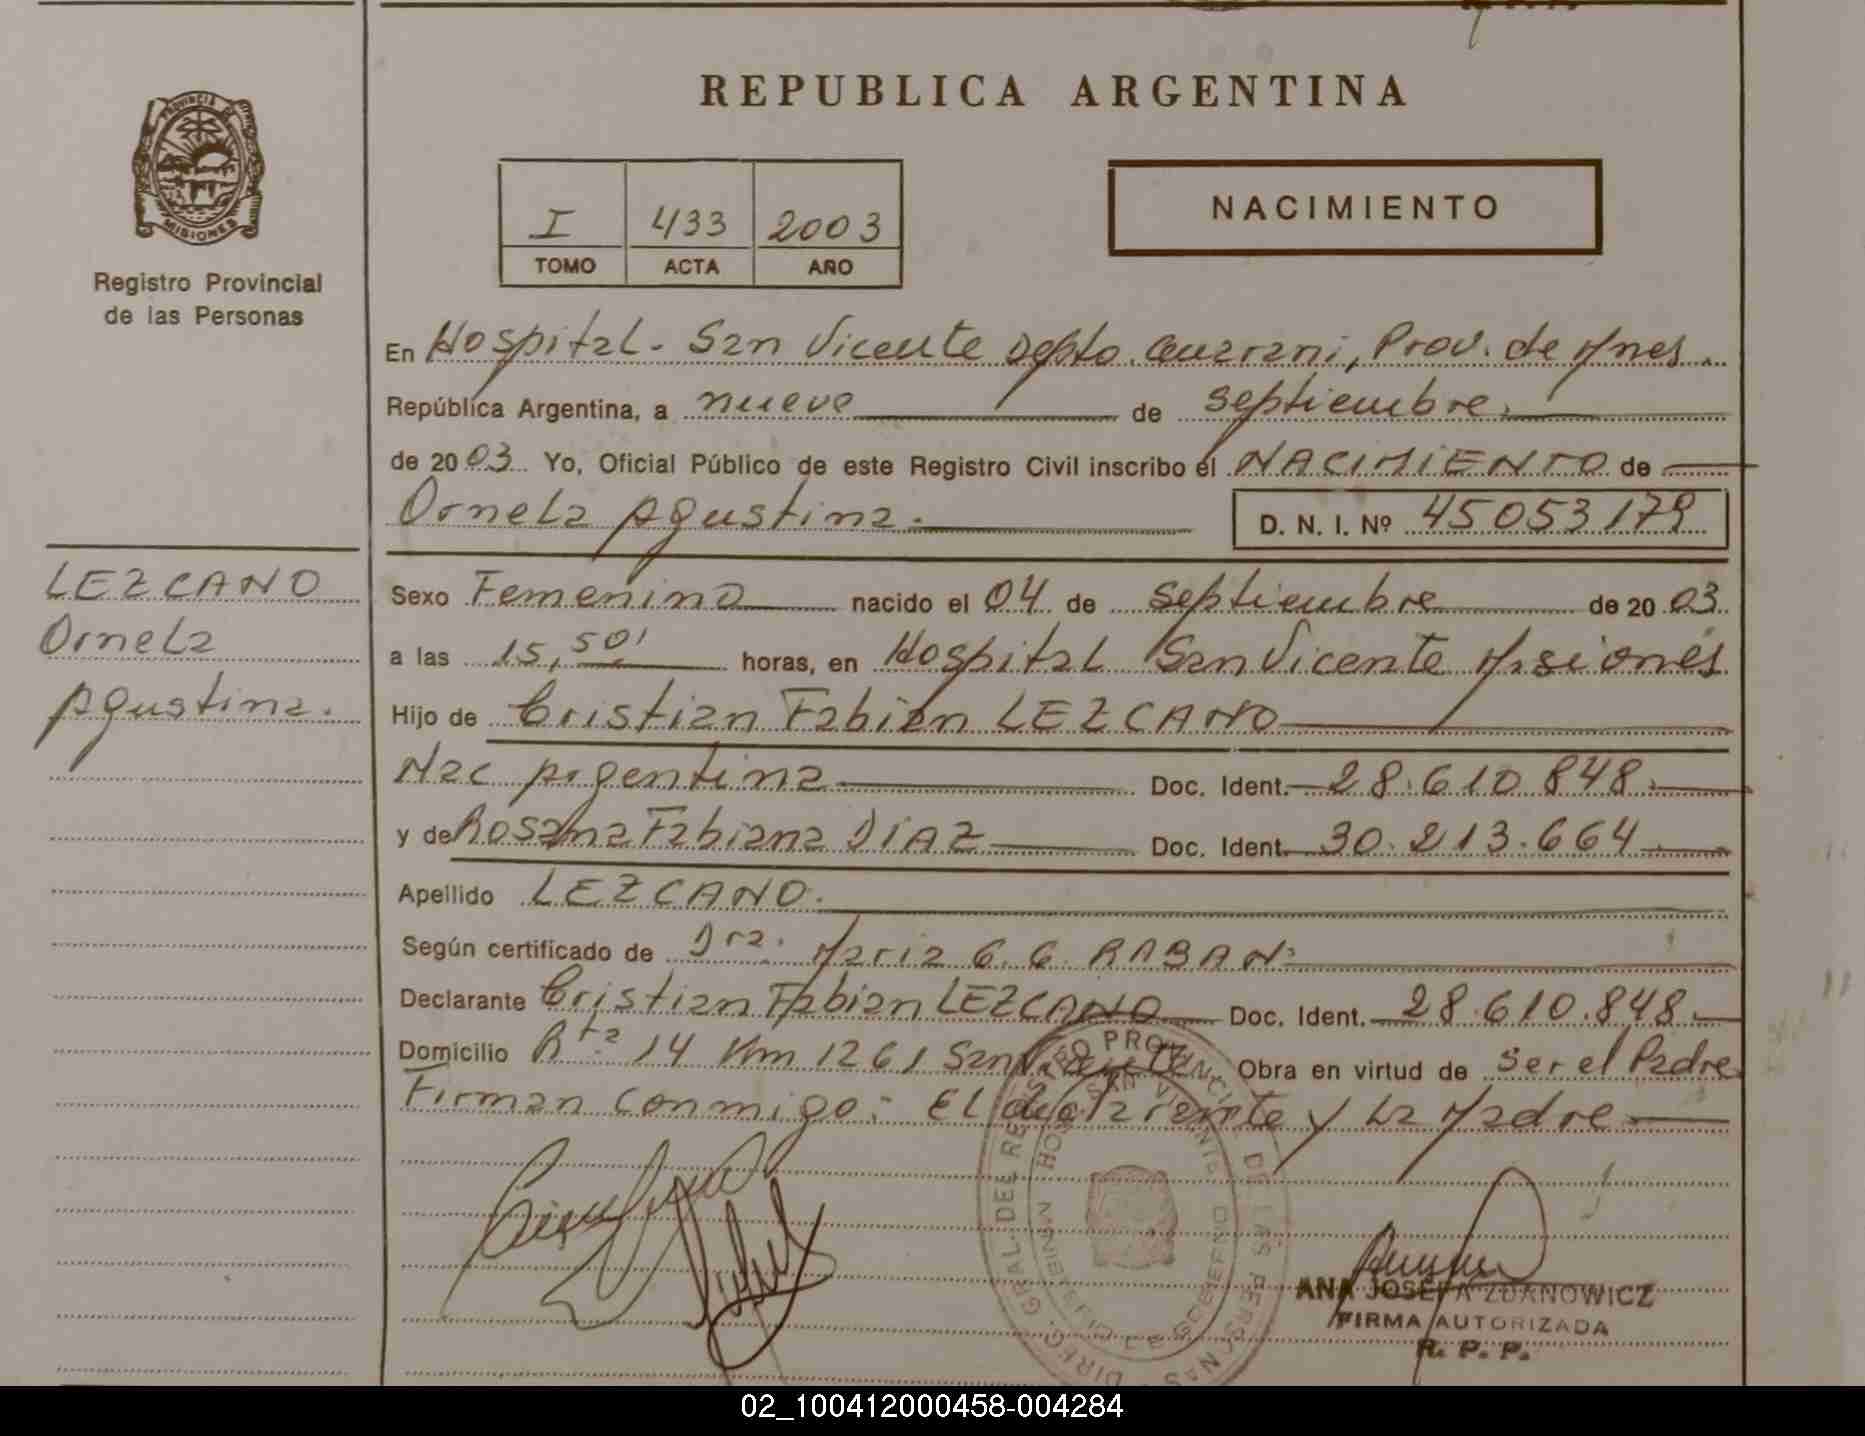 REPUBLICA ARGENTINA
PROVINCIA DE
MISIONES
Registro Provincial
de las Personas
I 433 2003
TOMO ACTA AÑO
NACIMIENTO
En Hospital - San Vicente Depto. Guarani, Prov. de Mnes.
República Argentina, a nueve de septiembre.
de 2003 Yo, Oficial Público de este Registro Civil inscribo el NACIMIENTO de
Ornela Agustina.
D. N. I. Nº 45053179
LEZCANO
Ornela
Agustina.
Sexo Femenino nacido el 04 de septiembre de 2003
a las 15,50' horas, en Hospital San Vicente Misiones
Hijo de Cristian Fabian LEZCANO
Nac Argentina Doc. Ident. 28.610.848.
y de Rosana Fabiana DIAZ Doc. Ident. 30.213.664
Apellido LEZCANO.
Según certificado de Dra. Maria G. G. RABAN
Declarante Cristian Fabian LEZCANO Doc. Ident. 28.610.848.
Domicilio Rta 14 Km 1261 San Vicente Obra en virtud de ser el Padre
Firman conmigo: El declarante y La Madre
ANA JOSEFA ZDANOWICZ
FIRMA AUTORIZADA
R. P. P.
02_100412000458-004284